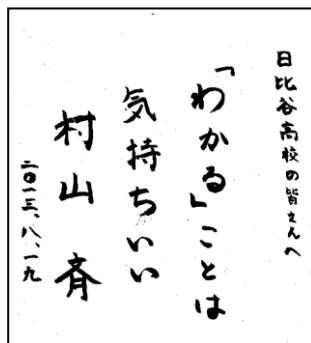 日比谷高校の皆さんへ
「わかる」ことは
気持ちいい
村山斉
二〇一三、八、一九